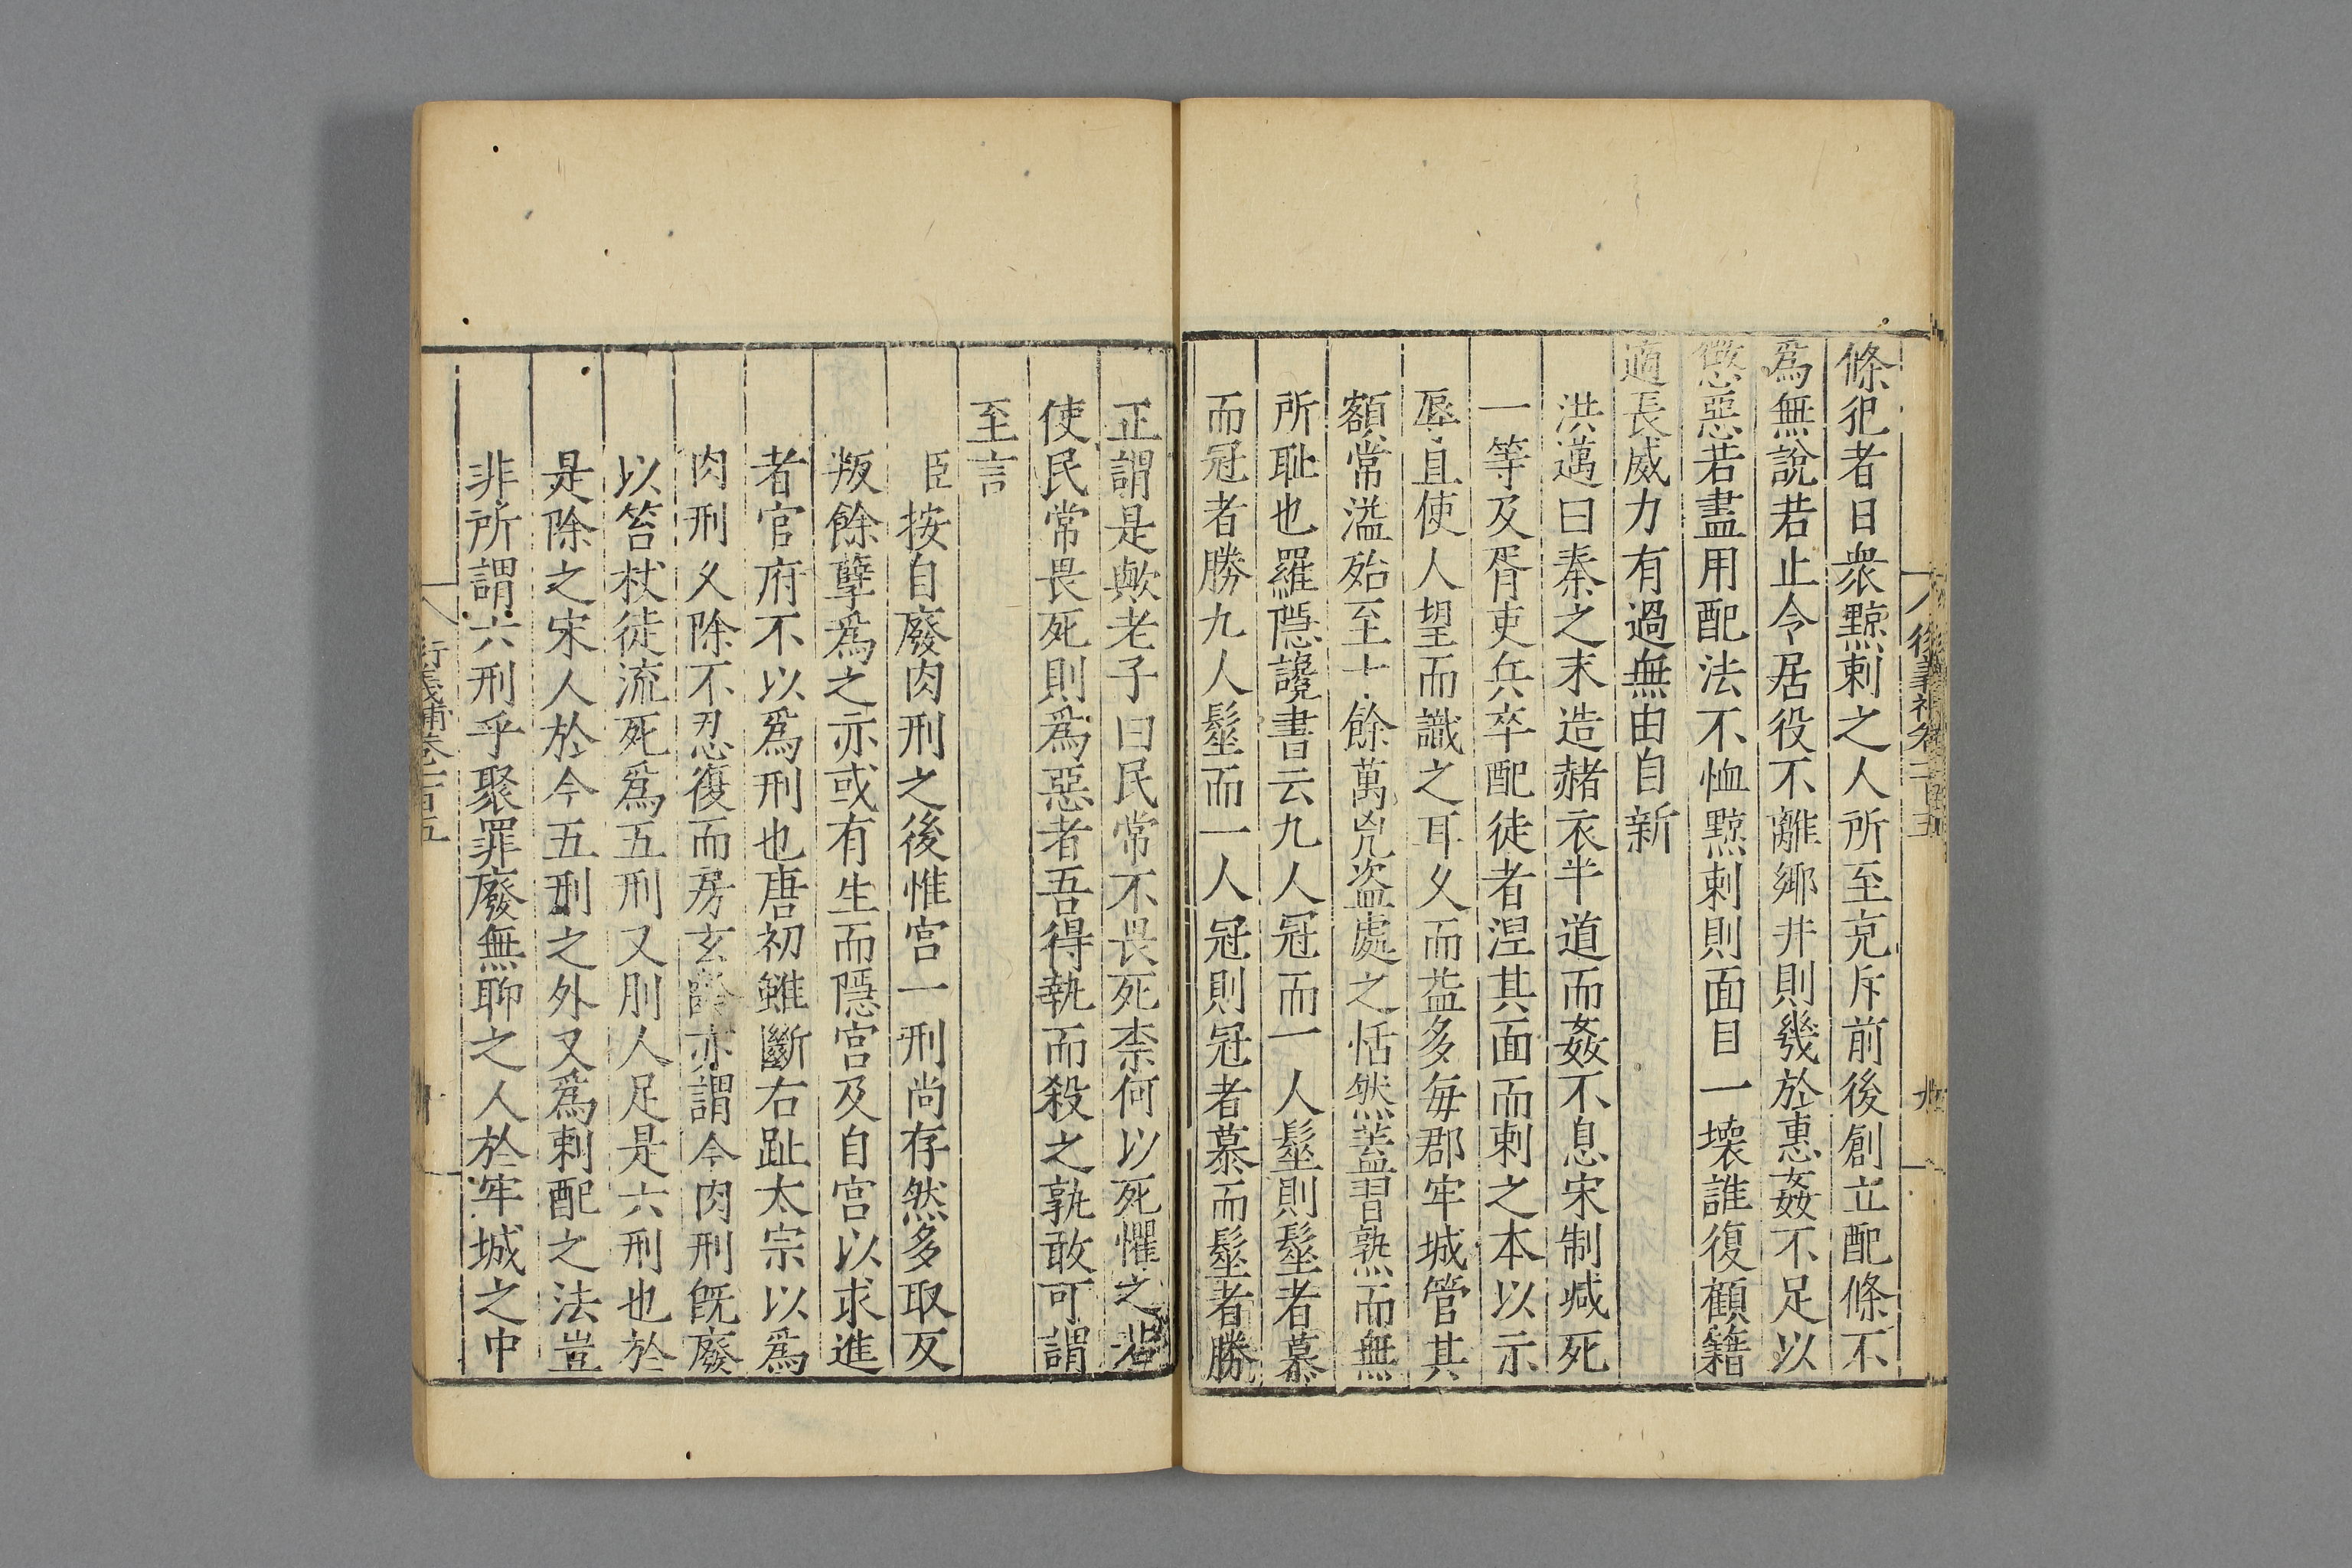 條犯者日衆黥刺之人所至充斥前後創立配條不
爲無說若止令居役不離鄉井則幾於惠姦不足以
懲惡若盡用配法不恤黥刺則面目一壞誰復顧籍
適長威力有過無由自新
洪邁曰秦之末造赭衣半道而姦不息宋制减死
一等及胥吏兵卒配徒者涅其面而刺之本以示
辱且使人望而識之耳乆而益多每郡牢城管其
額常溢殆至十餘萬兇盜處之恬然蓋習熟而無
所耻也羅隱讒書云九人冠而一人髽則髽者慕
而冠者勝九人髽而一人冠則冠者慕而髽者勝
正謂是歟老子曰民常不畏死柰何以死懼之若
使民常畏死則爲惡者吾得執而殺之孰敢可謂
至言
臣按自廢肉刑之後惟宫一刑尚存然多取反
叛餘孽爲之亦或有生而隱宫及自宫以求進
者官府不以爲刑也唐初雖斷右趾太宗以爲
肉刑乆除不忍復而房玄齡亦謂今肉刑旣廢
以笞杖徒流死爲五刑又刖人足是六刑也於
是除之宋人於今五刑之外又爲刺配之法豈
非所謂六刑乎聚罪廢無聊之人於牢城之中